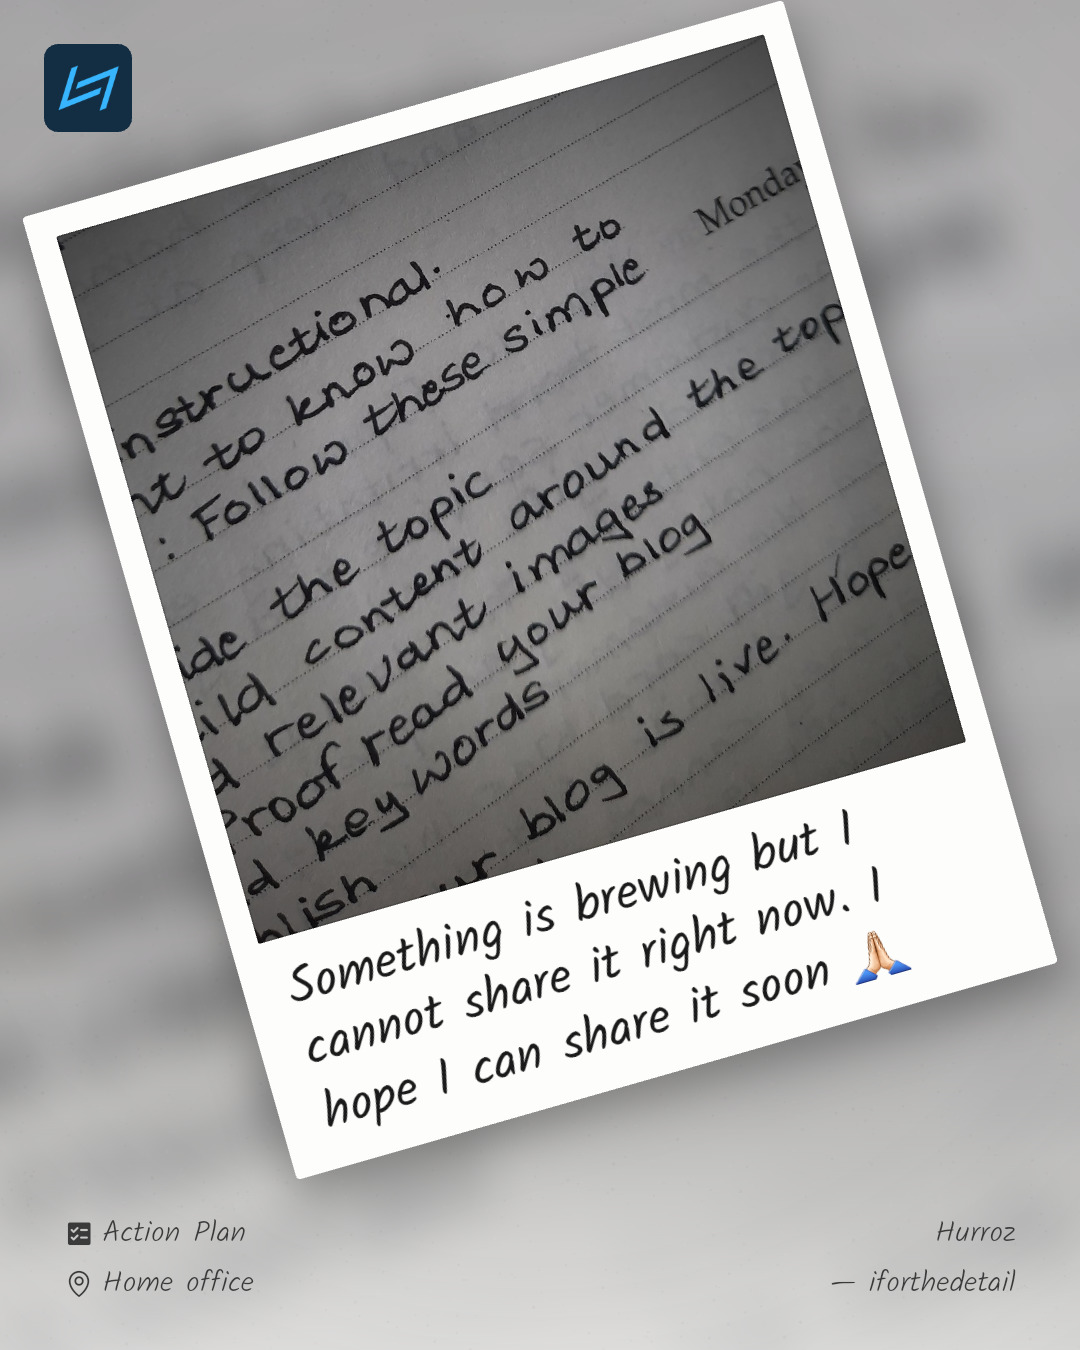 Monday
nstructional.
nt to know how to
: Follow these simple
ide the topic
ild content around the top
d relevant images
Proof read your blog
d key words
lish ur blog is live. Hope
Something is brewing but I
cannot share it right now. I
hope I can share it soon 🙏🏻
Action Plan
Home office
Hurroz
— iforthedetail